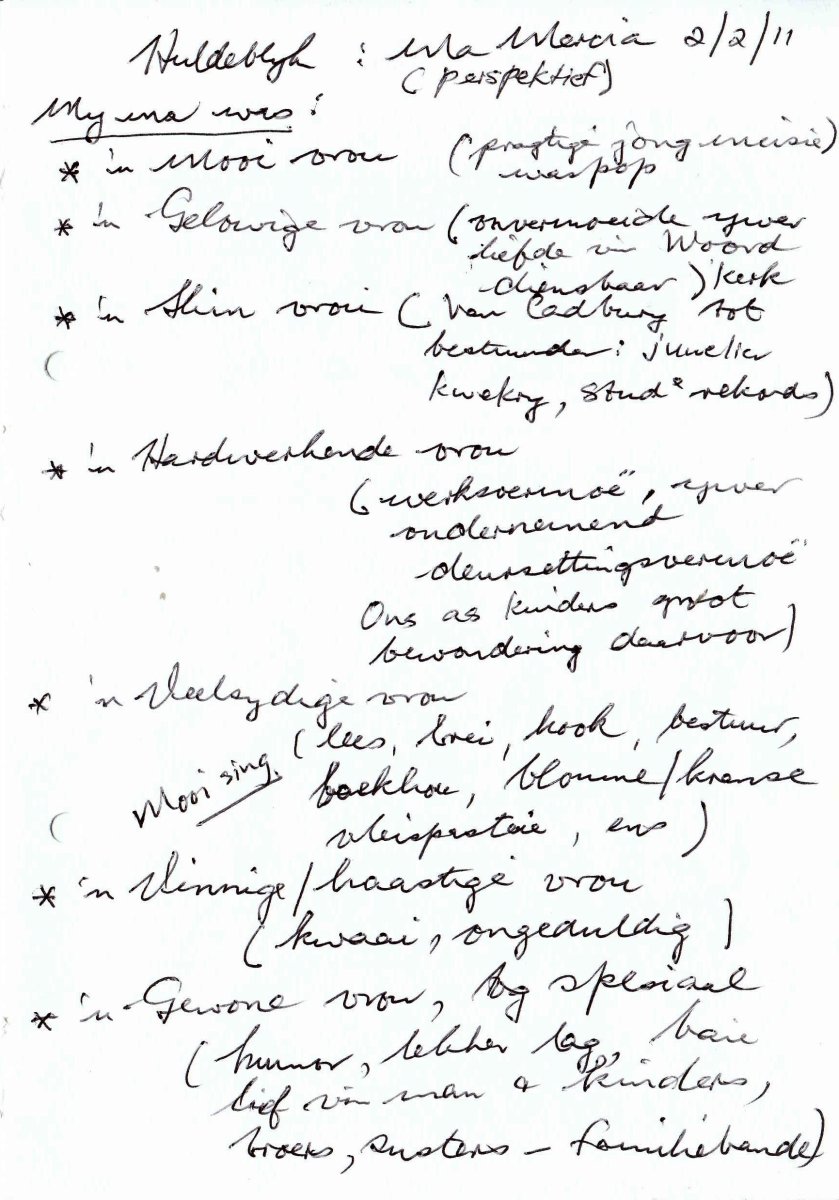 Huldeblyk : Ma Marcia 2/2/11
(perspektief)
My ma was:
* 'n Mooi vrou (pragtige jong meisie)
waspop
* 'n Gelowige vrou (onvermoeide ywer
liefde vir Woord
diensbaar) kerk
* 'n Slim vrou (Van Cadbury tot
bestuurder: juwelier
kwekery, stud rekords)
* 'n Hardwerkende vrou
(werksvermoë, ywer
ondernemend
deursettingsvermoë
Ons as kinders groot
bewondering daarvoor)
* 'n Veelsydige vrou
(lees, brei, kook, bestuur,
Mooi sing, boekhou, blomme/kranse
vleispasteie, ens)
* 'n Vinnige/haastige vrou
(kwaai, ongeduldig)
* 'n Gewone vrou, tog spesiaal
(humor, lekker lag, baie
lief vir man & kinders,
broers, susters - familiebande)